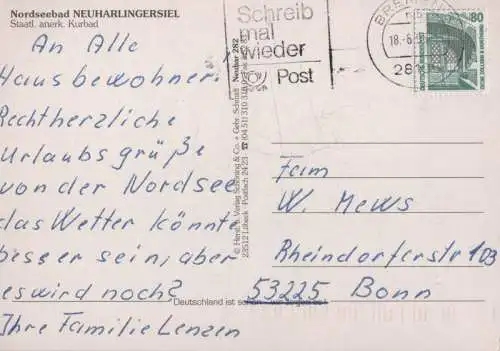 Nordseebad NEUHARLINGERSIEL
Staatl. anerk. Kurbad
An Alle
Hausbewohner.
Rechtherzliche
Urlaubsgrüße
von der Nordsee
das Wetter könnte
besser sein, aber
es wird noch?
Ihre Familie Lenzen
Schreib
mal
wieder
Post
18.-6.
80
DEUTSCHE BUNDESPOST
© Herst. u. Verlag Schöning & Co. + Gebr. Schmidt · Neuhar 282
23512 Lübeck · Postfach 24 23 · ☎ (04 51) 310 3
Deutschland ist schön
Fam
W. Mews
Rheindorferstr 103
53225 Bonn